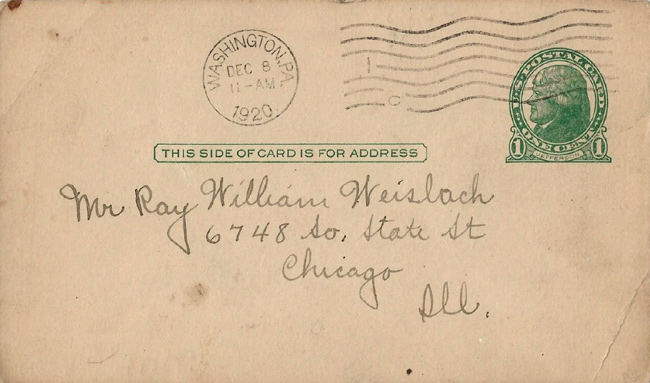 WASHINGTON, PA.
DEC 8
11-AM
1920
U.S. POSTAL CARD
ONE CENT
1 JEFFERSON 1
THIS SIDE OF CARD IS FOR ADDRESS
Mr Ray William Weislach
6748 So. State St
Chicago
Ill.